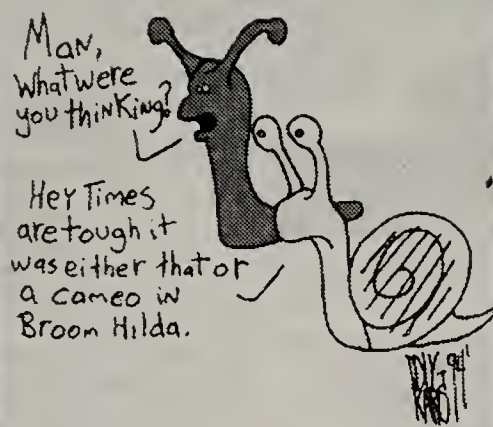 Man,
What were
you thinking?
Hey Times
are tough it
was either that or
a cameo in
Broom Hilda.